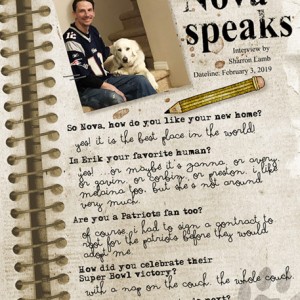 Nova
speaks
Interview by
Sharron Lamb
Dateline: February 3, 2019
12
So Nova, how do you like your new home?
yes! it is the best place in the world!
Is Erik your favorite human?
yes! ... or maybe it's ganna, or avery,
or gavin, or corbin, or preston. i like
melaina too, but she's not around
very much.
Are you a Patriots fan too?
of course. i had to sign a contract to
root for the patriots before they would
adopt me.
How did you celebrate their
Super Bowl victory?
with a nap on the couch. the whole couch.